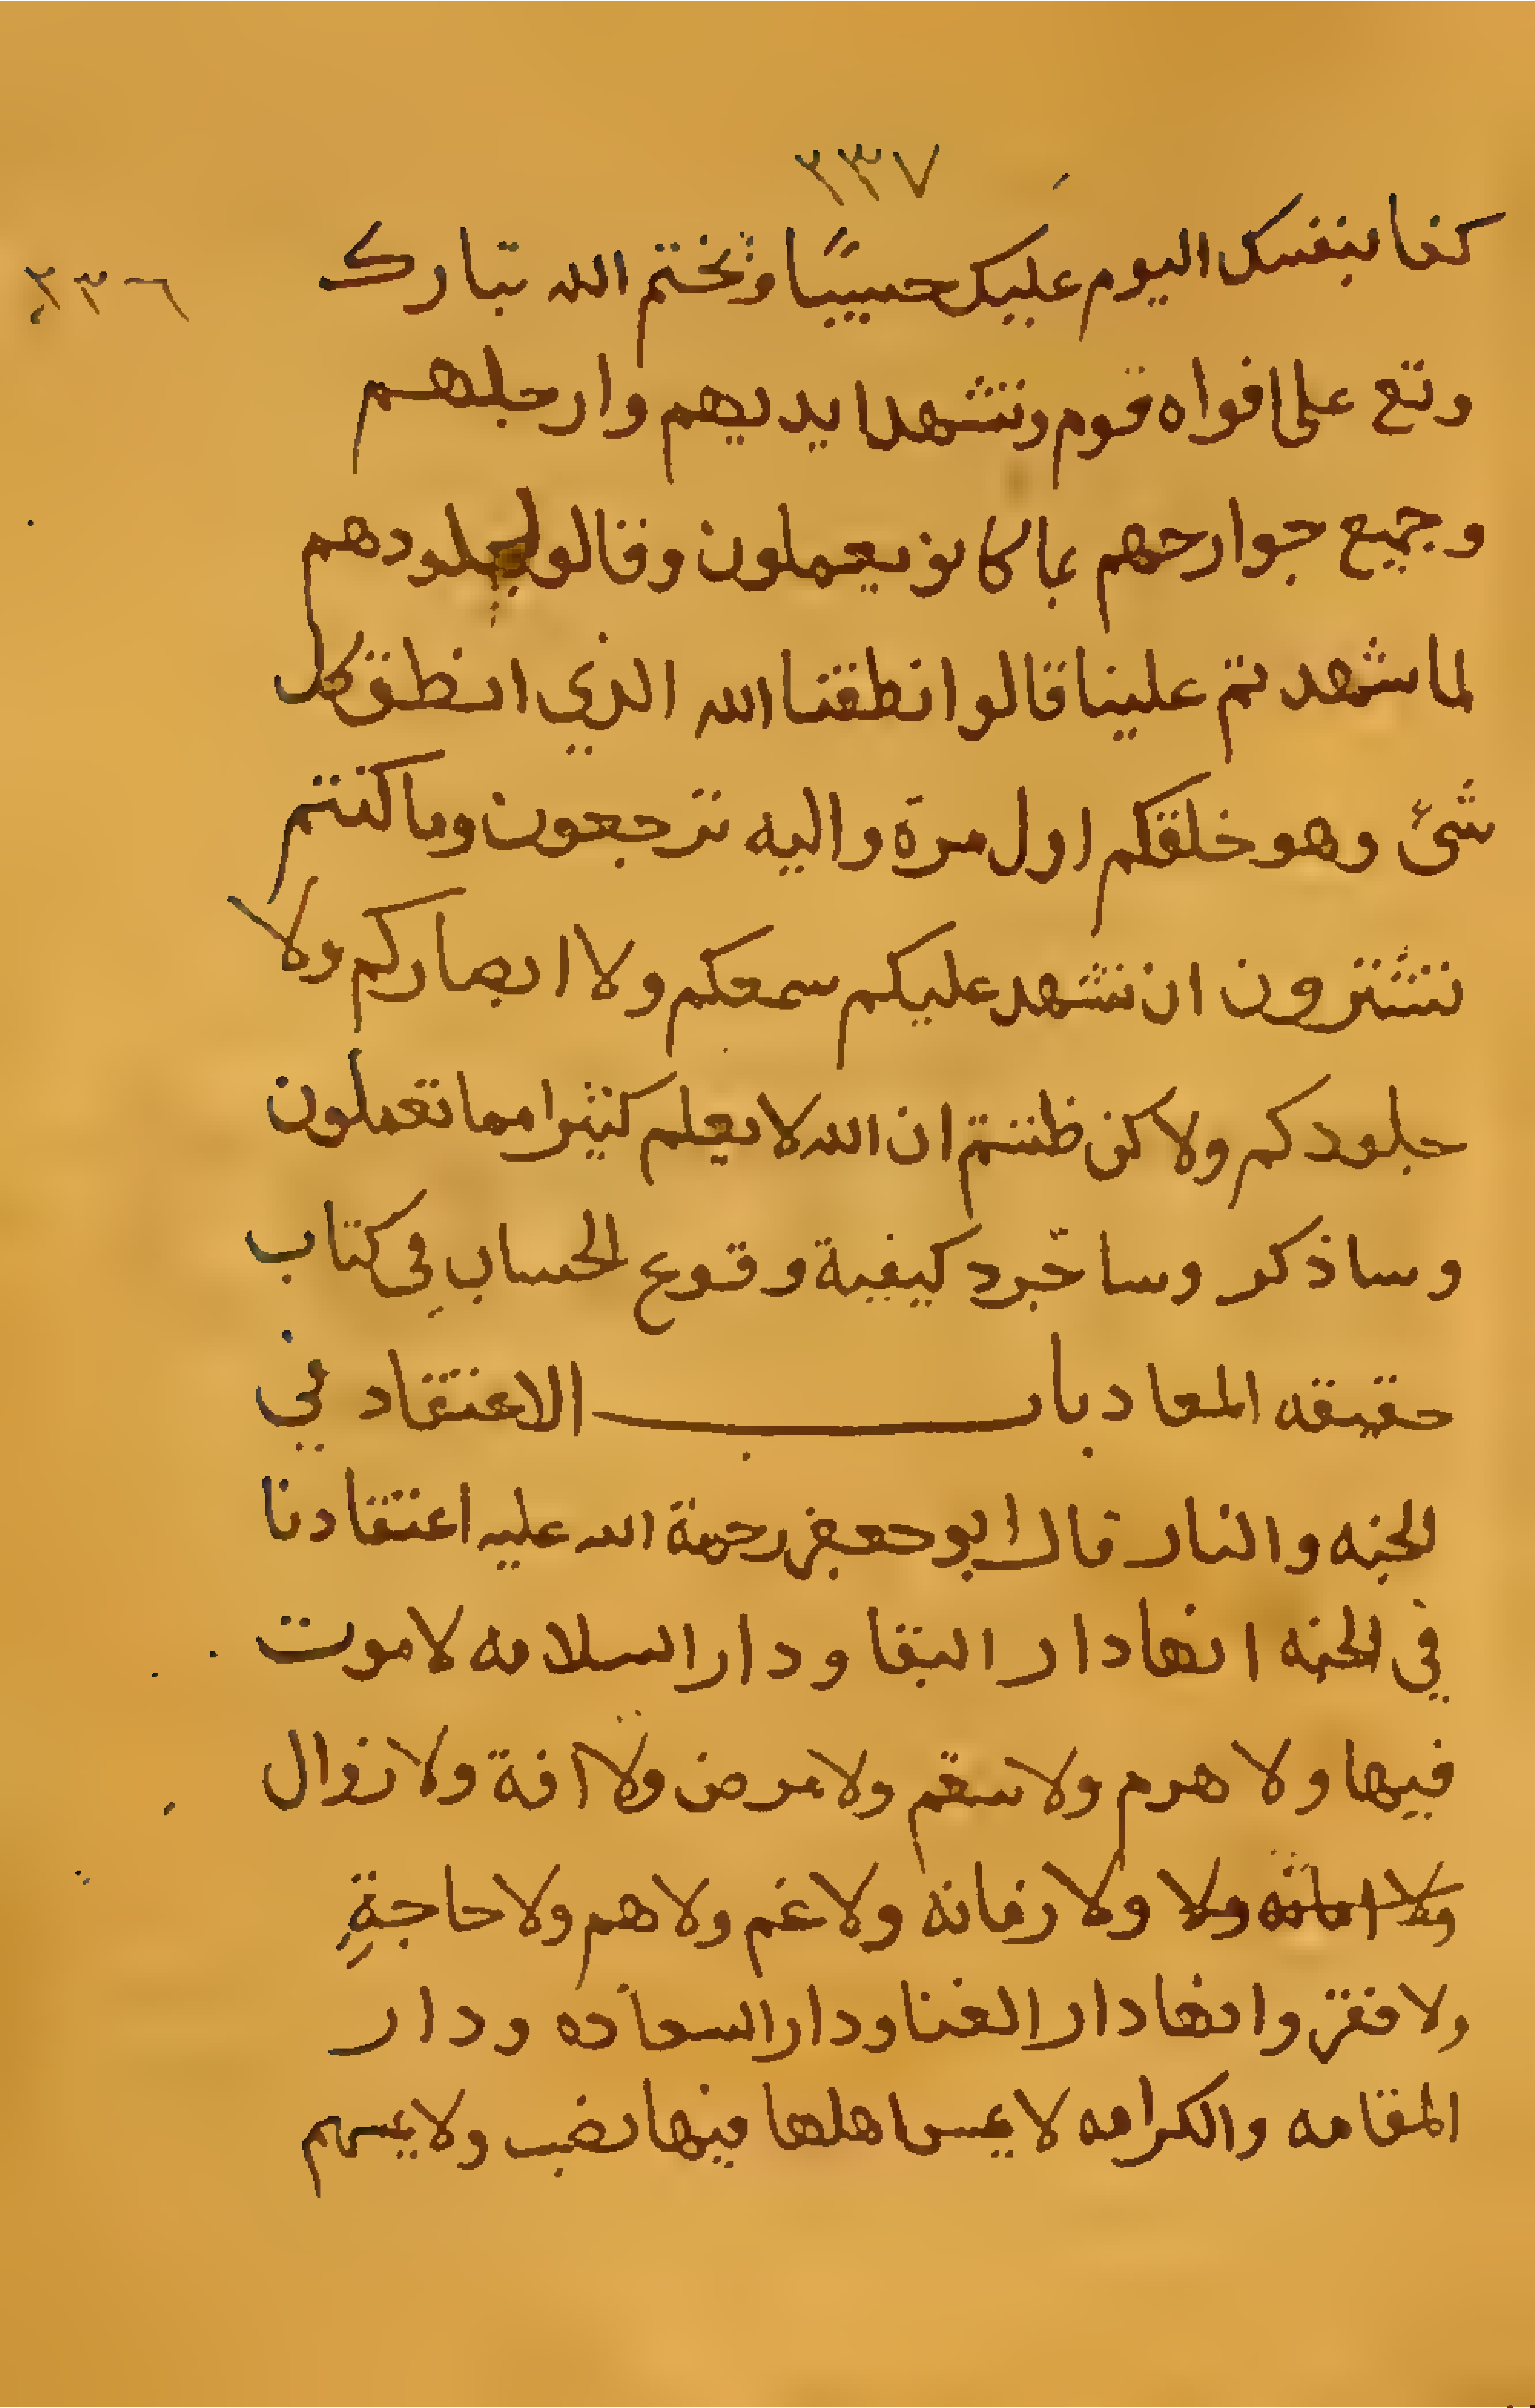 ٢٣٧
كفا بنفسك اليوم عليك حسيبًا ويختم الله تبارك
٢٣٦
وتع على افواه قوم وتشهد ايديهم وارجلهم
وجميع جوارحهم بما كانو يعملون وقالو لجلودهم
لما شهدتم علينا قالوا انطقنا الله الذي انطق كل
شئ وهو خلقكم اول مرة واليه ترجعون وما كنتم
تستترون ان تشهد عليكم سمعكم ولا ابصاركم ولا
جلودكم ولاكن ظننتم ان الله لا يعلم كثيرا مما تعملون
وساذكر وساجّرد كيفية وقوع الحساب في كتاب
حقيقه المعاد باب الاعتقاد في
الجنه والنار قال ابو جعفر رحمة الله عليه اعتقادنا
في الجنه انها دار البقا ودار السلامه لا موت
فيها ولا هرم ولا سقم ولا مرض ولا افة ولا زوال
ولا ولا ولا زمانه ولا غم ولا هم ولا حاجةٍ
ولا فقر وانها دار الغنا ودار السعاده ودار
المقامه والكرامه لا يمس اهلها فيها نصب ولا يمسهم